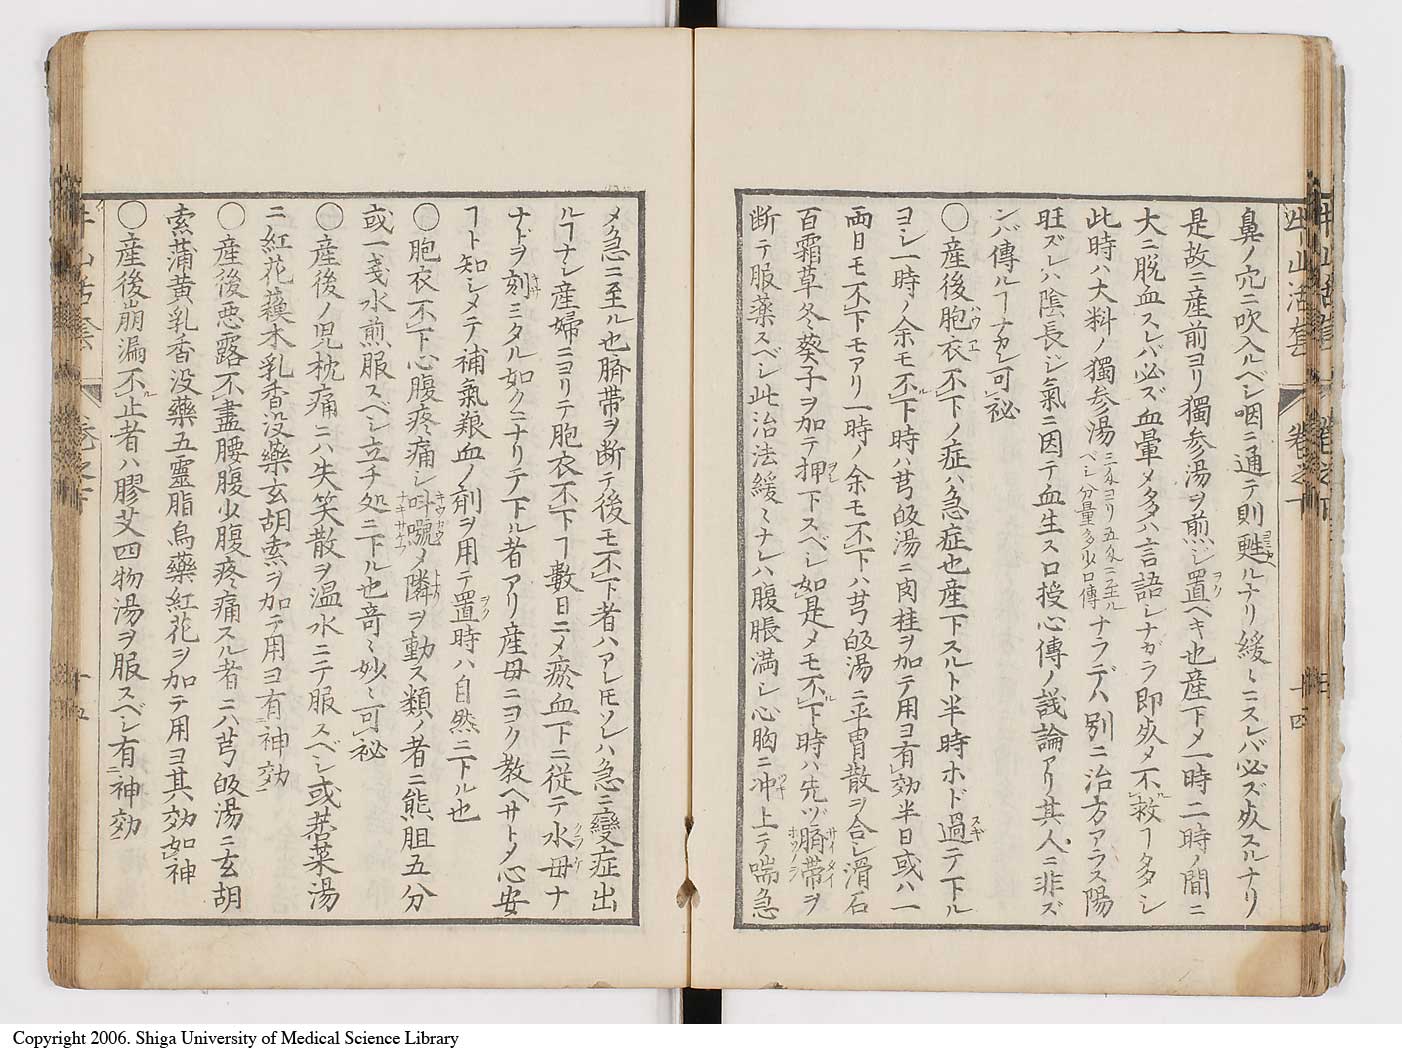 鼻ノ穴ニ吹入ルベシ咽ニ通テ則甦ルナリ緩〻ニスレバ必ズ死スルナリ
是故ニ産前ヨリ獨参湯ヲ煎ジ置ベキ也産下メ一時二時ノ間ニ
大ニ脱血スレバ必ズ血暈メ多クハ言語シナガラ即死メ不救ヿタタシ
此時ハ大料ノ獨参湯三匁ヨリ五匁ニ至ルベシ分量多少口傳ナラデハ別ニ治方アラス陽
旺ズレハ陰長ジ氣ニ因テ血生スロ授心傳ノ議論アリ其人ニ非ズ
ンバ傳ルヿナカレ可秘
○産後胞衣不下ノ症ハ急症也産下スルト半時ホド過テ下ル
ヨシ一時ノ余モ不下時ハ芎皈湯ニ肉桂ヲ加テ用ヨ有効半日或ハ一
両日モ不下モアリ一時ノ余モ不下ハ芎皈湯ニ平胃散ヲ合シ滑石
百霜草冬葵子ヲ加テ押下スベシ如是メモ不下時ハ先ヅ臍帯ヲ
断テ服藥スベシ此治法緩〻ナレハ腹脹満シ心胸ニ冲上テ喘急
牛山活套 卷之下 十四
メ急ニ至ル也臍帯ヲ断テ後モ不下者ハアレ𪜈ソレハ急ニ變症出
ルヿナシ産婦ニヨリテ胞衣不下ヿ數日ニメ瘀血下ニ従テ水母ナ
ナドヲ刻ミタル如クニナリテ下ル者アリ産母ニヨク教ヘサトメ心安
ヿト知シメテ補氣養血ノ剤ヲ用テ置時ハ自然ニ下ル也
○胞衣不下心腹疼痛シ叫號メ隣ヲ動ス類ノ者ニ熊胆五分
或一戔水煎服スベシ立チ処ニ下ル也奇〻妙〻可秘
○産後ノ児枕痛ニハ失笑散ヲ温水ニテ服スベシ或芎菜湯
ニ紅花蘓木乳香没藥玄胡索ヲ加テ用ヨ有神効
○産後悪露不盡腰腹少腹疼痛スル者ニハ芎皈湯ニ玄胡
索蒲黄乳香没藥五靈脂烏藥紅花ヲ加テ用ヨ其効如神
○産後崩漏不止者ハ膠艾四物湯ヲ服スベシ有神効
牛山活套 卷之下 十五
Copyright 2006. Shiga University of Medical Science Library